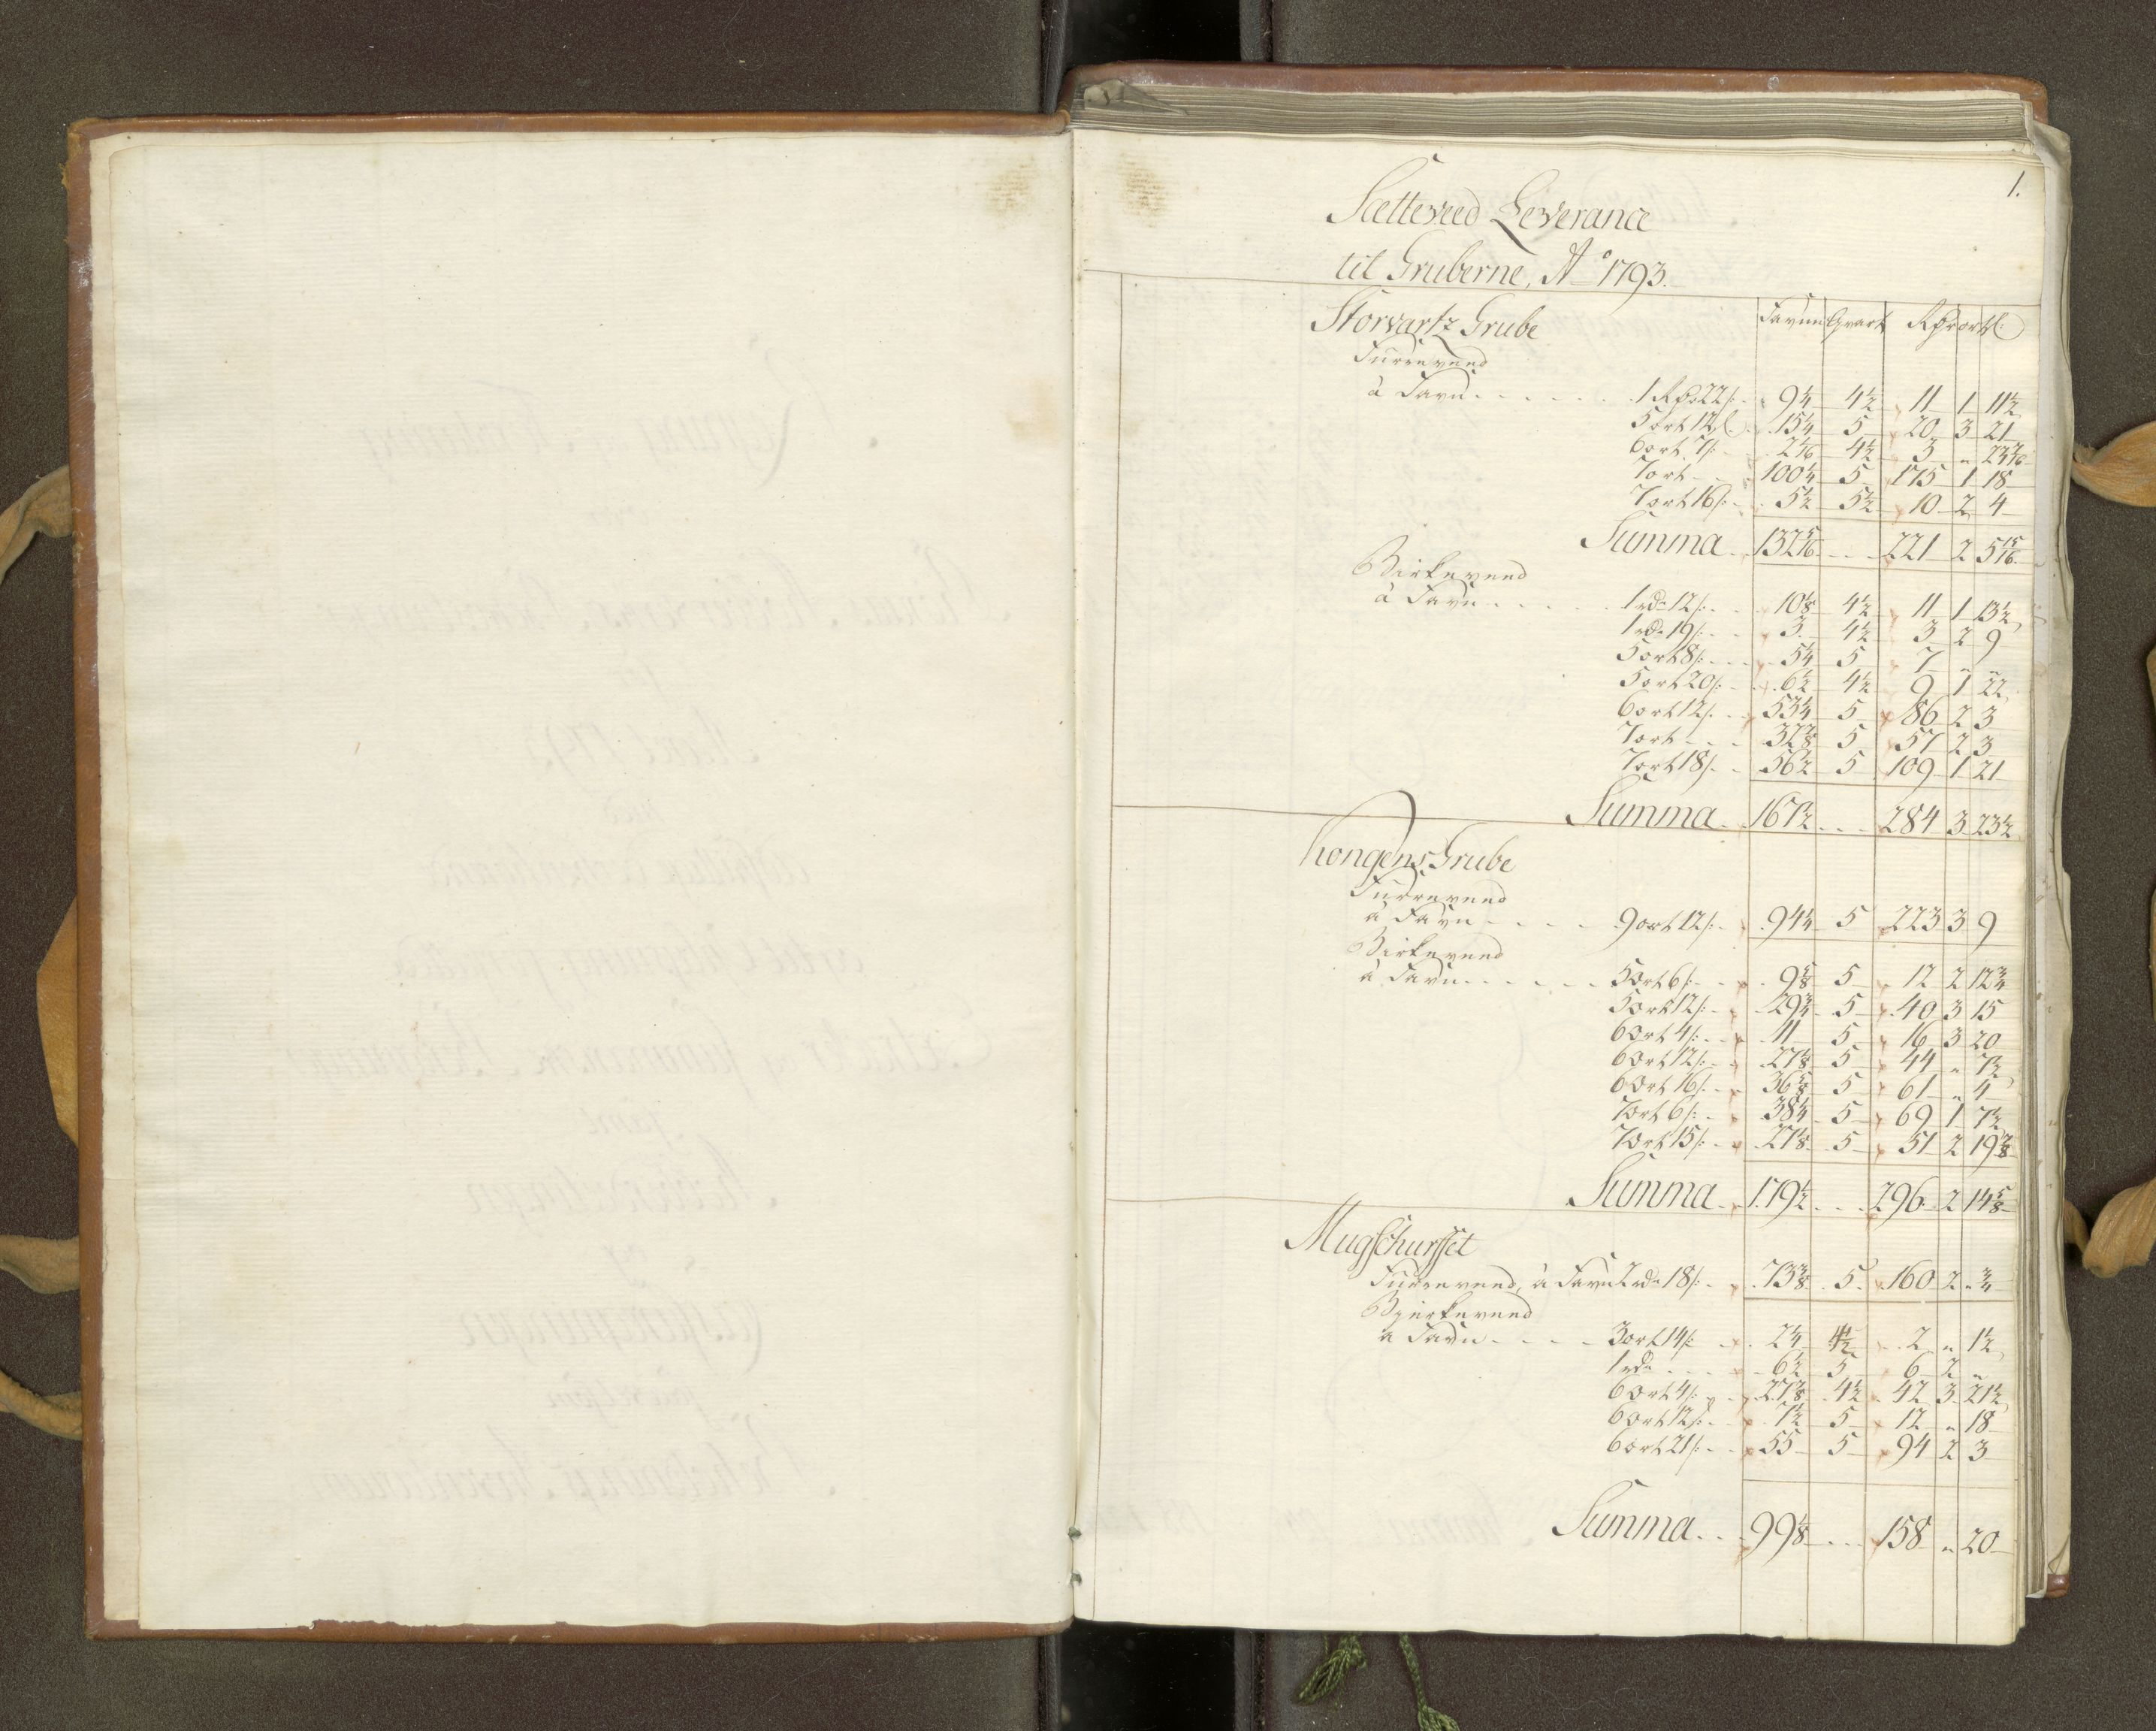 1.
Sætteveed Leverance
til Gruberne, Aº 1793.
Storvartz Grube Favne Qvart Rdr ort ſ:
Furreveed
à Favn 1 Rdr 22 ſ: 9 1/4 4 1/2 11 1 11 1/2
5 ort 12 ſ 15 1/4 5 20 3 21
6 ort 7 ſ: 4 1/2 3 "
7 ort 100 1/4 5 175 1 18
7 ort 16 ſ: 5 1/2 5 1/2 10 2 4
Summa 132 5/16 221 2 5 15/16
Birkeveed
à Favn 1 rdr 12 ſ: 10 1/8 4 1/2 11 1 13 1/2
1 rdr 19 ſ: 3 4 1/2 3 2 9
5 ort 8 ſ: 5 1/4 5 7 " "
5 ort 20 ſ: 6 1/2 4 1/2 9 1 22
6 ort 12 ſ: 53 1/4 5 86 2 3
7 ort 32 7/8 5 57 2 3
7 ort 18 ſ: 56 1/2 5 109 1 21
Summa 167 1/2 284 3 23 1/2
Kongens Grube
Furreveed
à Favn 9 ort 12 ſ: 94 1/4 5 223 3 9
Birkeveed
à Favn 5 ort 6 ſ: 9 5/8 5 12 2 12 3/4
5 ort 12 ſ: 29 3/4 5 40 3 15
6 ort 4 ſ: 11 5 16 3 20
6 ort 12 ſ: 27 1/8 5 44 " 7 1/2
6 ort 16 ſ: 36 5/8 5 61 " 4
7 ort 6 ſ: 38 1/4 5 69 1 7 1/2
7 ort 15 ſ: 27 1/8 5 51 2 19 7/8
Summa 179 1/2 296 2 14 5/8
Mugſchurſſet
Furreveed, à Favn 2 rdr 18 ſ: 73 3/8 5 160 2 " 3/4
Bjerkeveed
à Favn 3 ort 14 ſ: 2 1/4 4 1/2 2 " 1 1/2
1 rdr 6 1/2 5 6 2 "
6 ort 4 ſ: 27 7/8 4 1/2 42 3 21 1/2
6 ort 12 ſ: 7 1/2 5 12 " 18
6 ort 21 ſ: 55 5 94 2 3
Summa 99 1/8 158 " 20